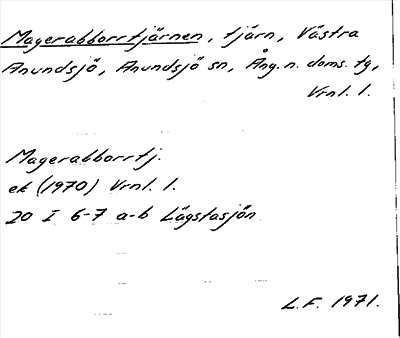 Magerabborrtjärnen, tjärn, Västra
Anundsjö, Anundsjö sn, Ång. n. doms. tg,
Vrnl. 1.
Magerabborrtj.
ek (1970) Vrnl. 1.
20 I 6-7 a-b Lägstasjön
L.F. 1971.